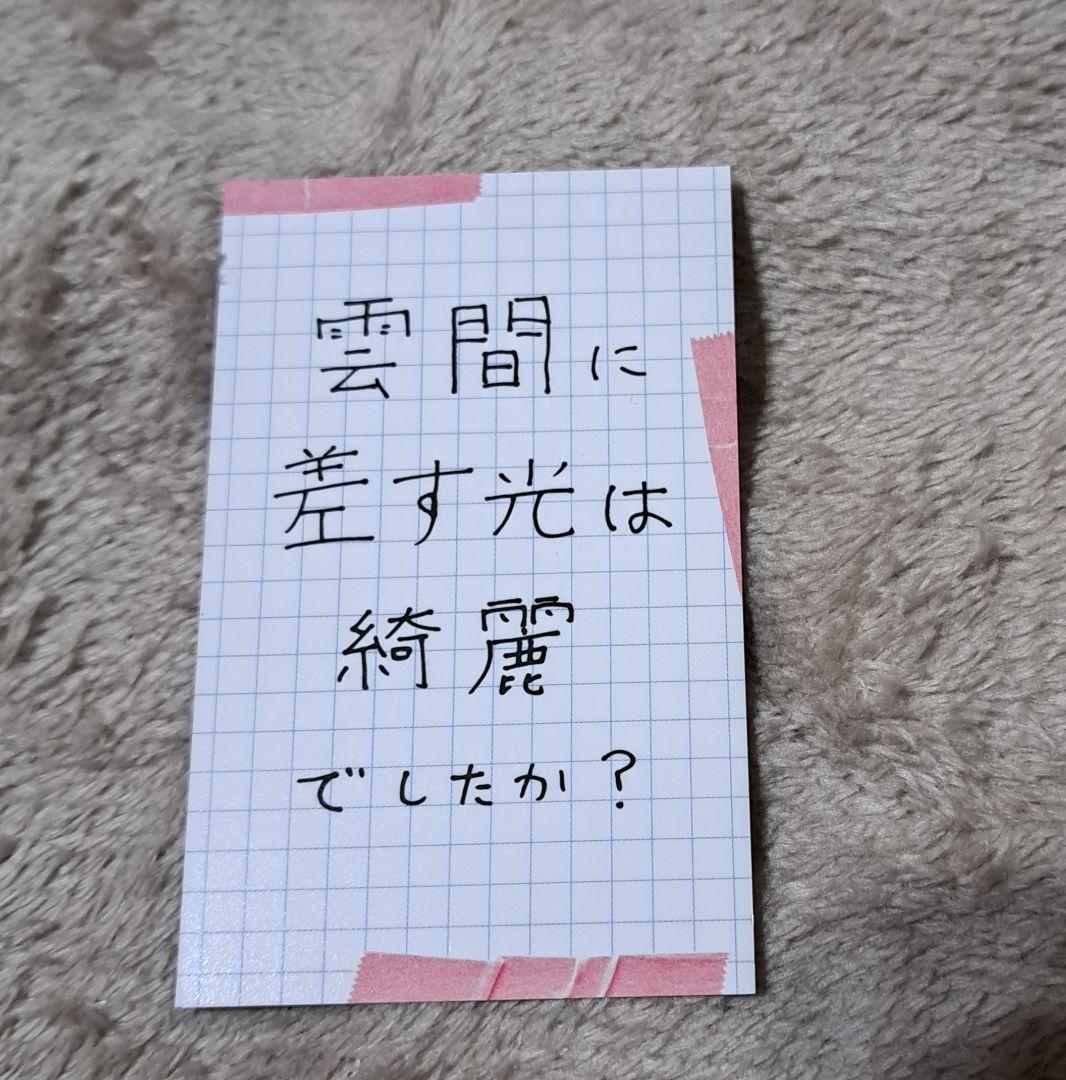 雲間に
差す光は
綺麗
でしたか？